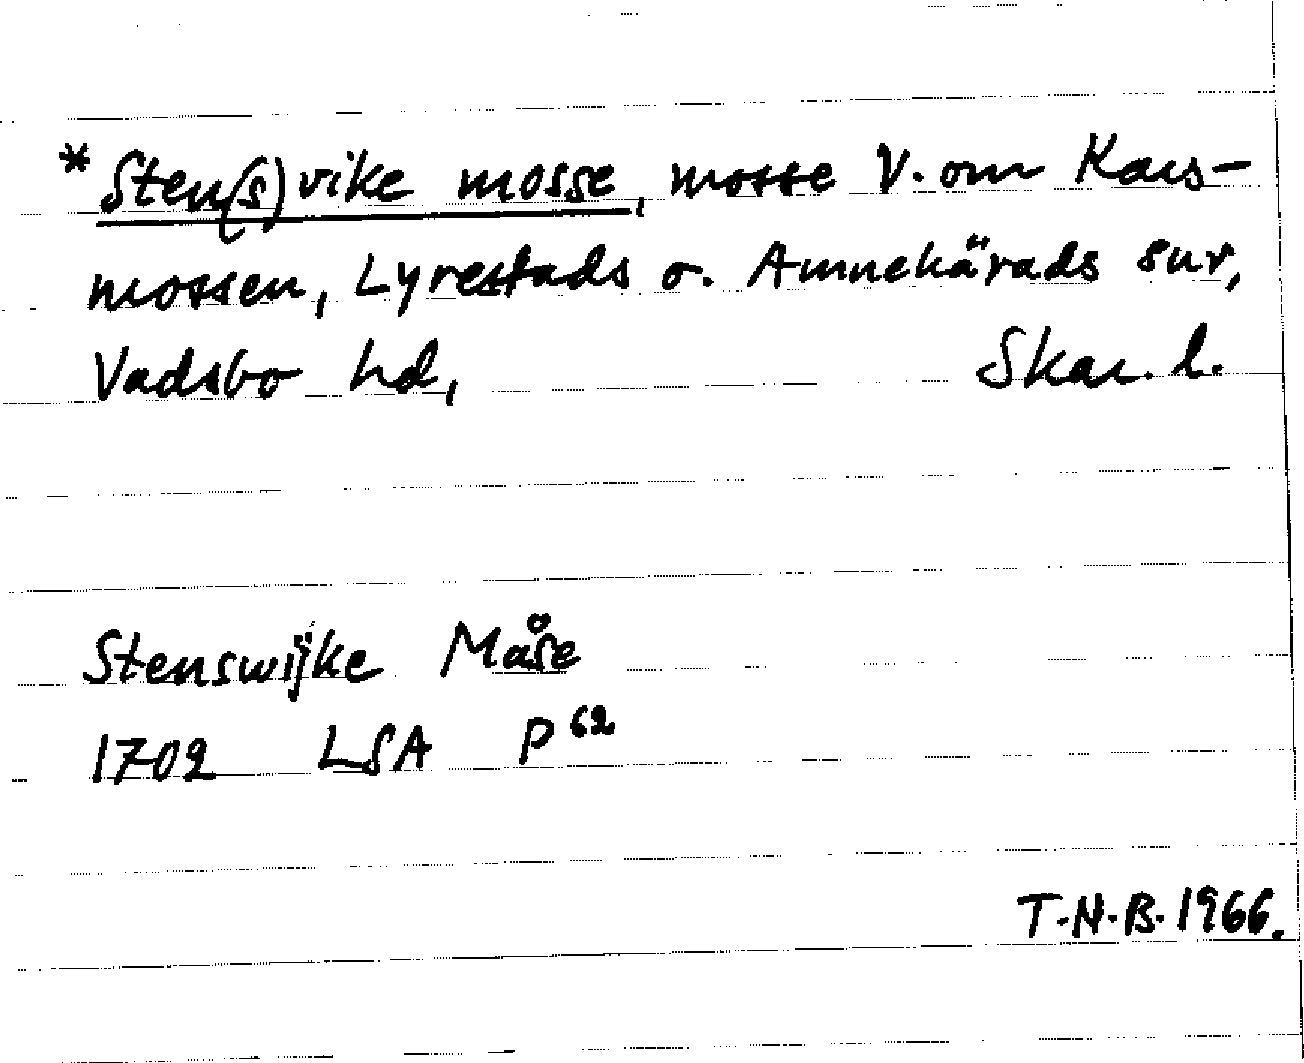 *Sten(s)vike mosse, mosse V. om Kars-
mossen, Lyrestads o. Amnehärads snr,
Vadsbo hd, Skar. l.
Stenswijke Måse
1702 LSA P 62
T.N.B. 1966.